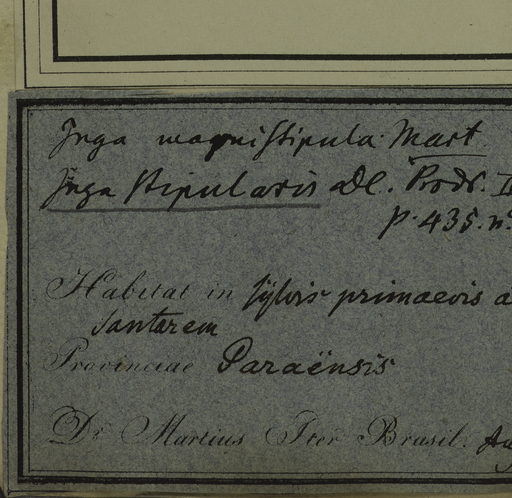 Inga magnistipula Mart.
Inga stipularis DC. Prodr. II
p. 435. n.
Habitat in sylvis primaevis a
Santarem
Provinciae Paraënsis
Dr. Martius Iter Brasil.